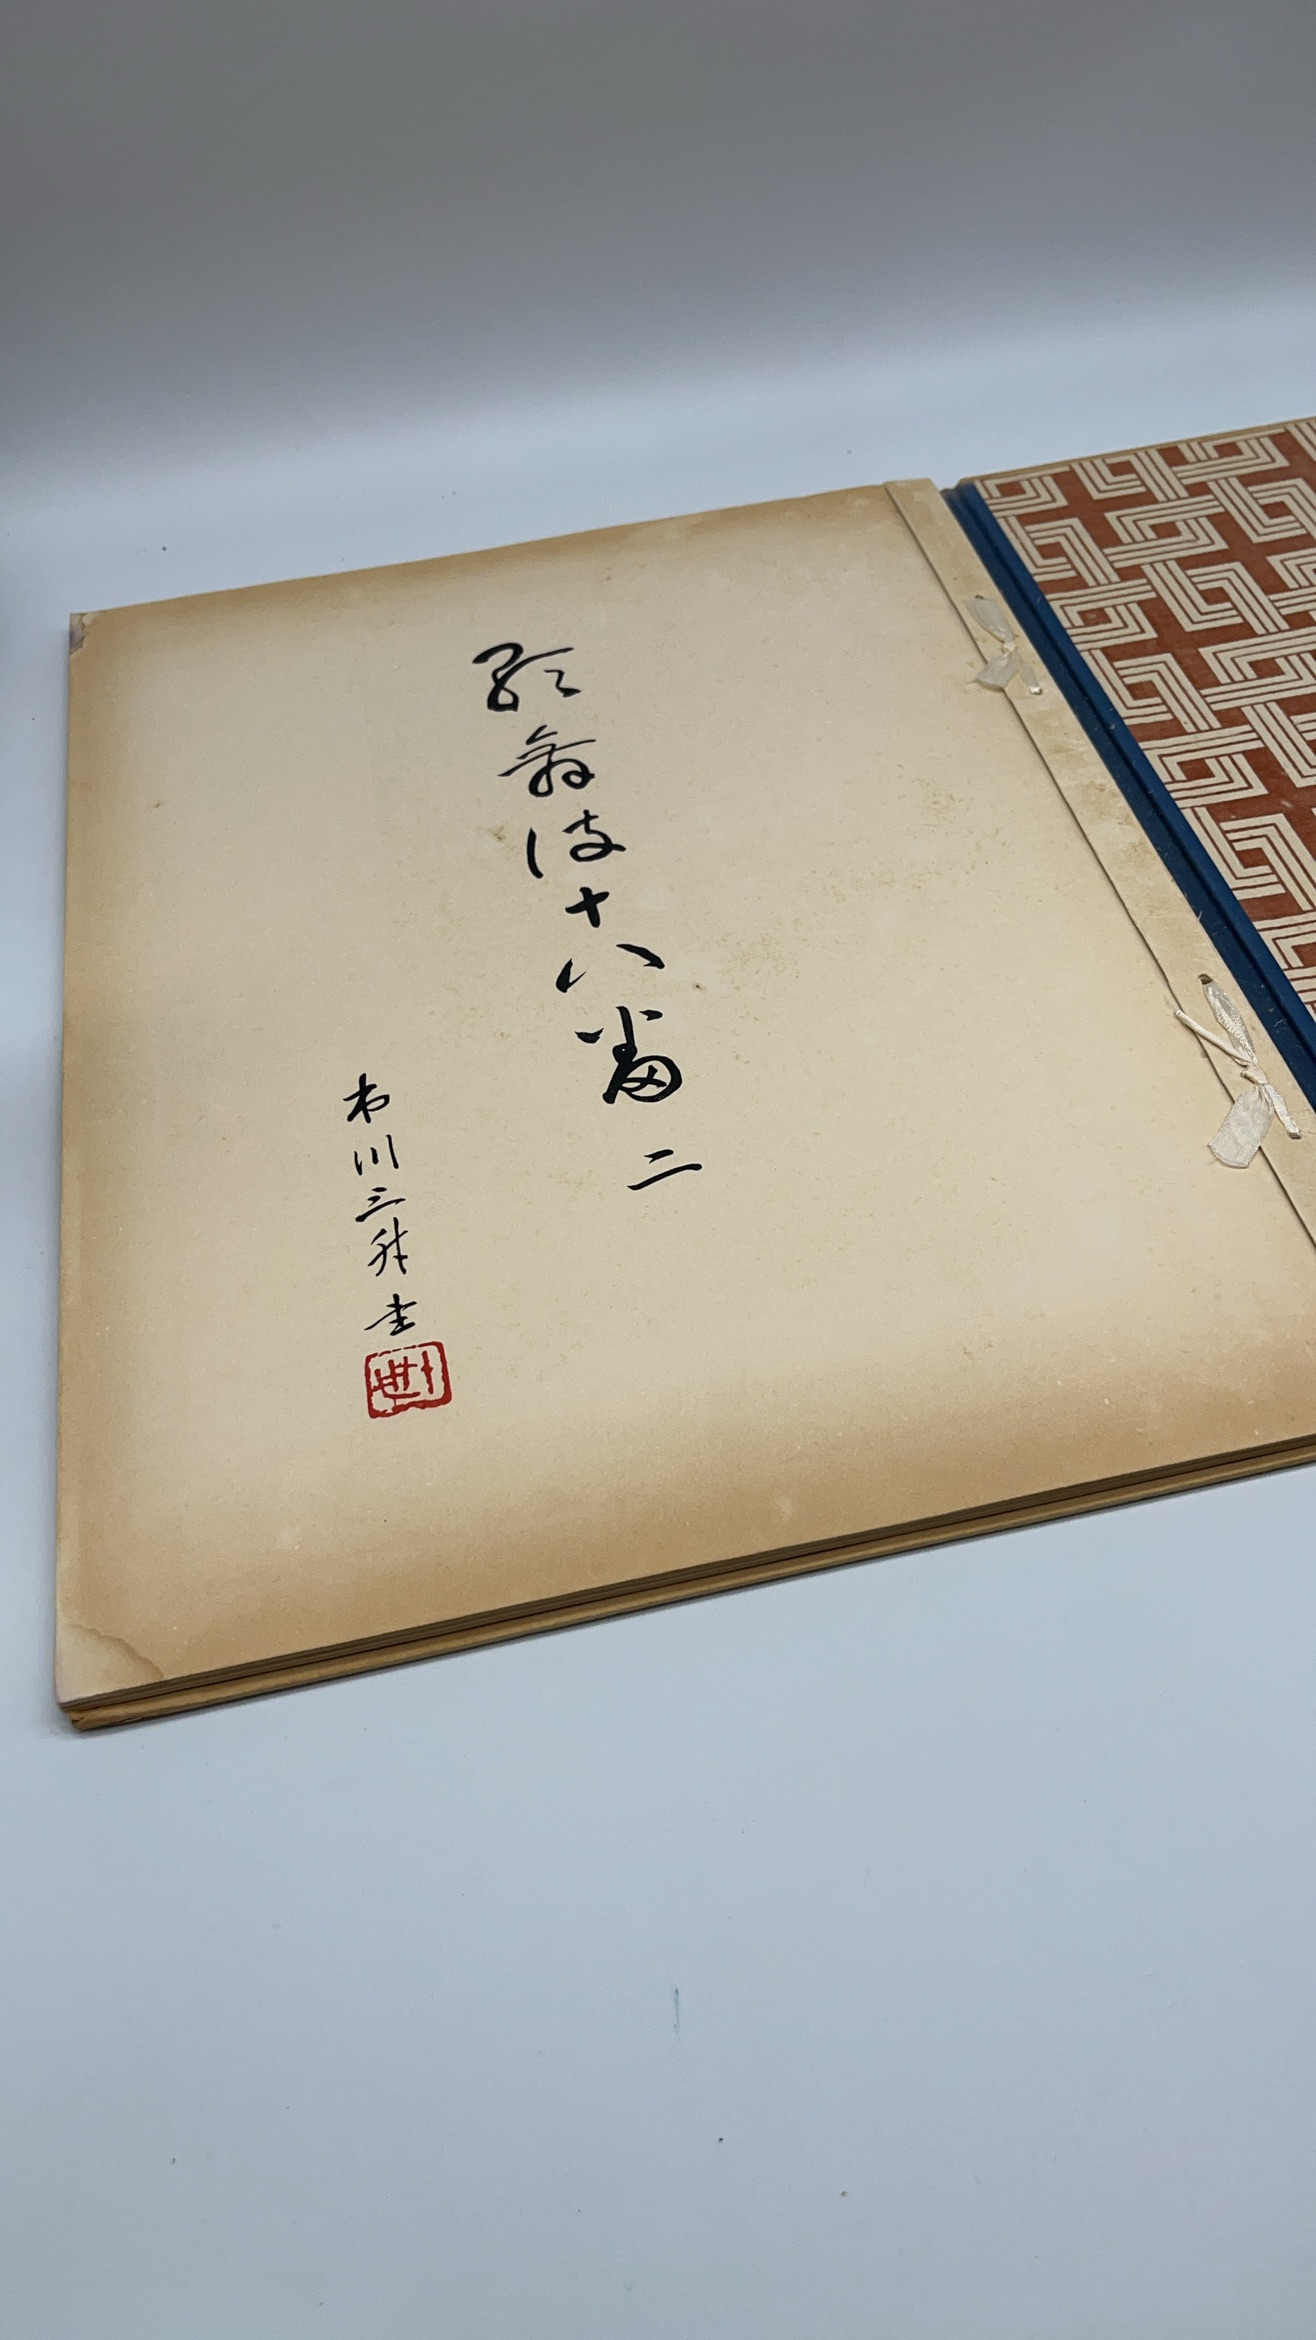 歌舞伎十八番 二
市川三升書